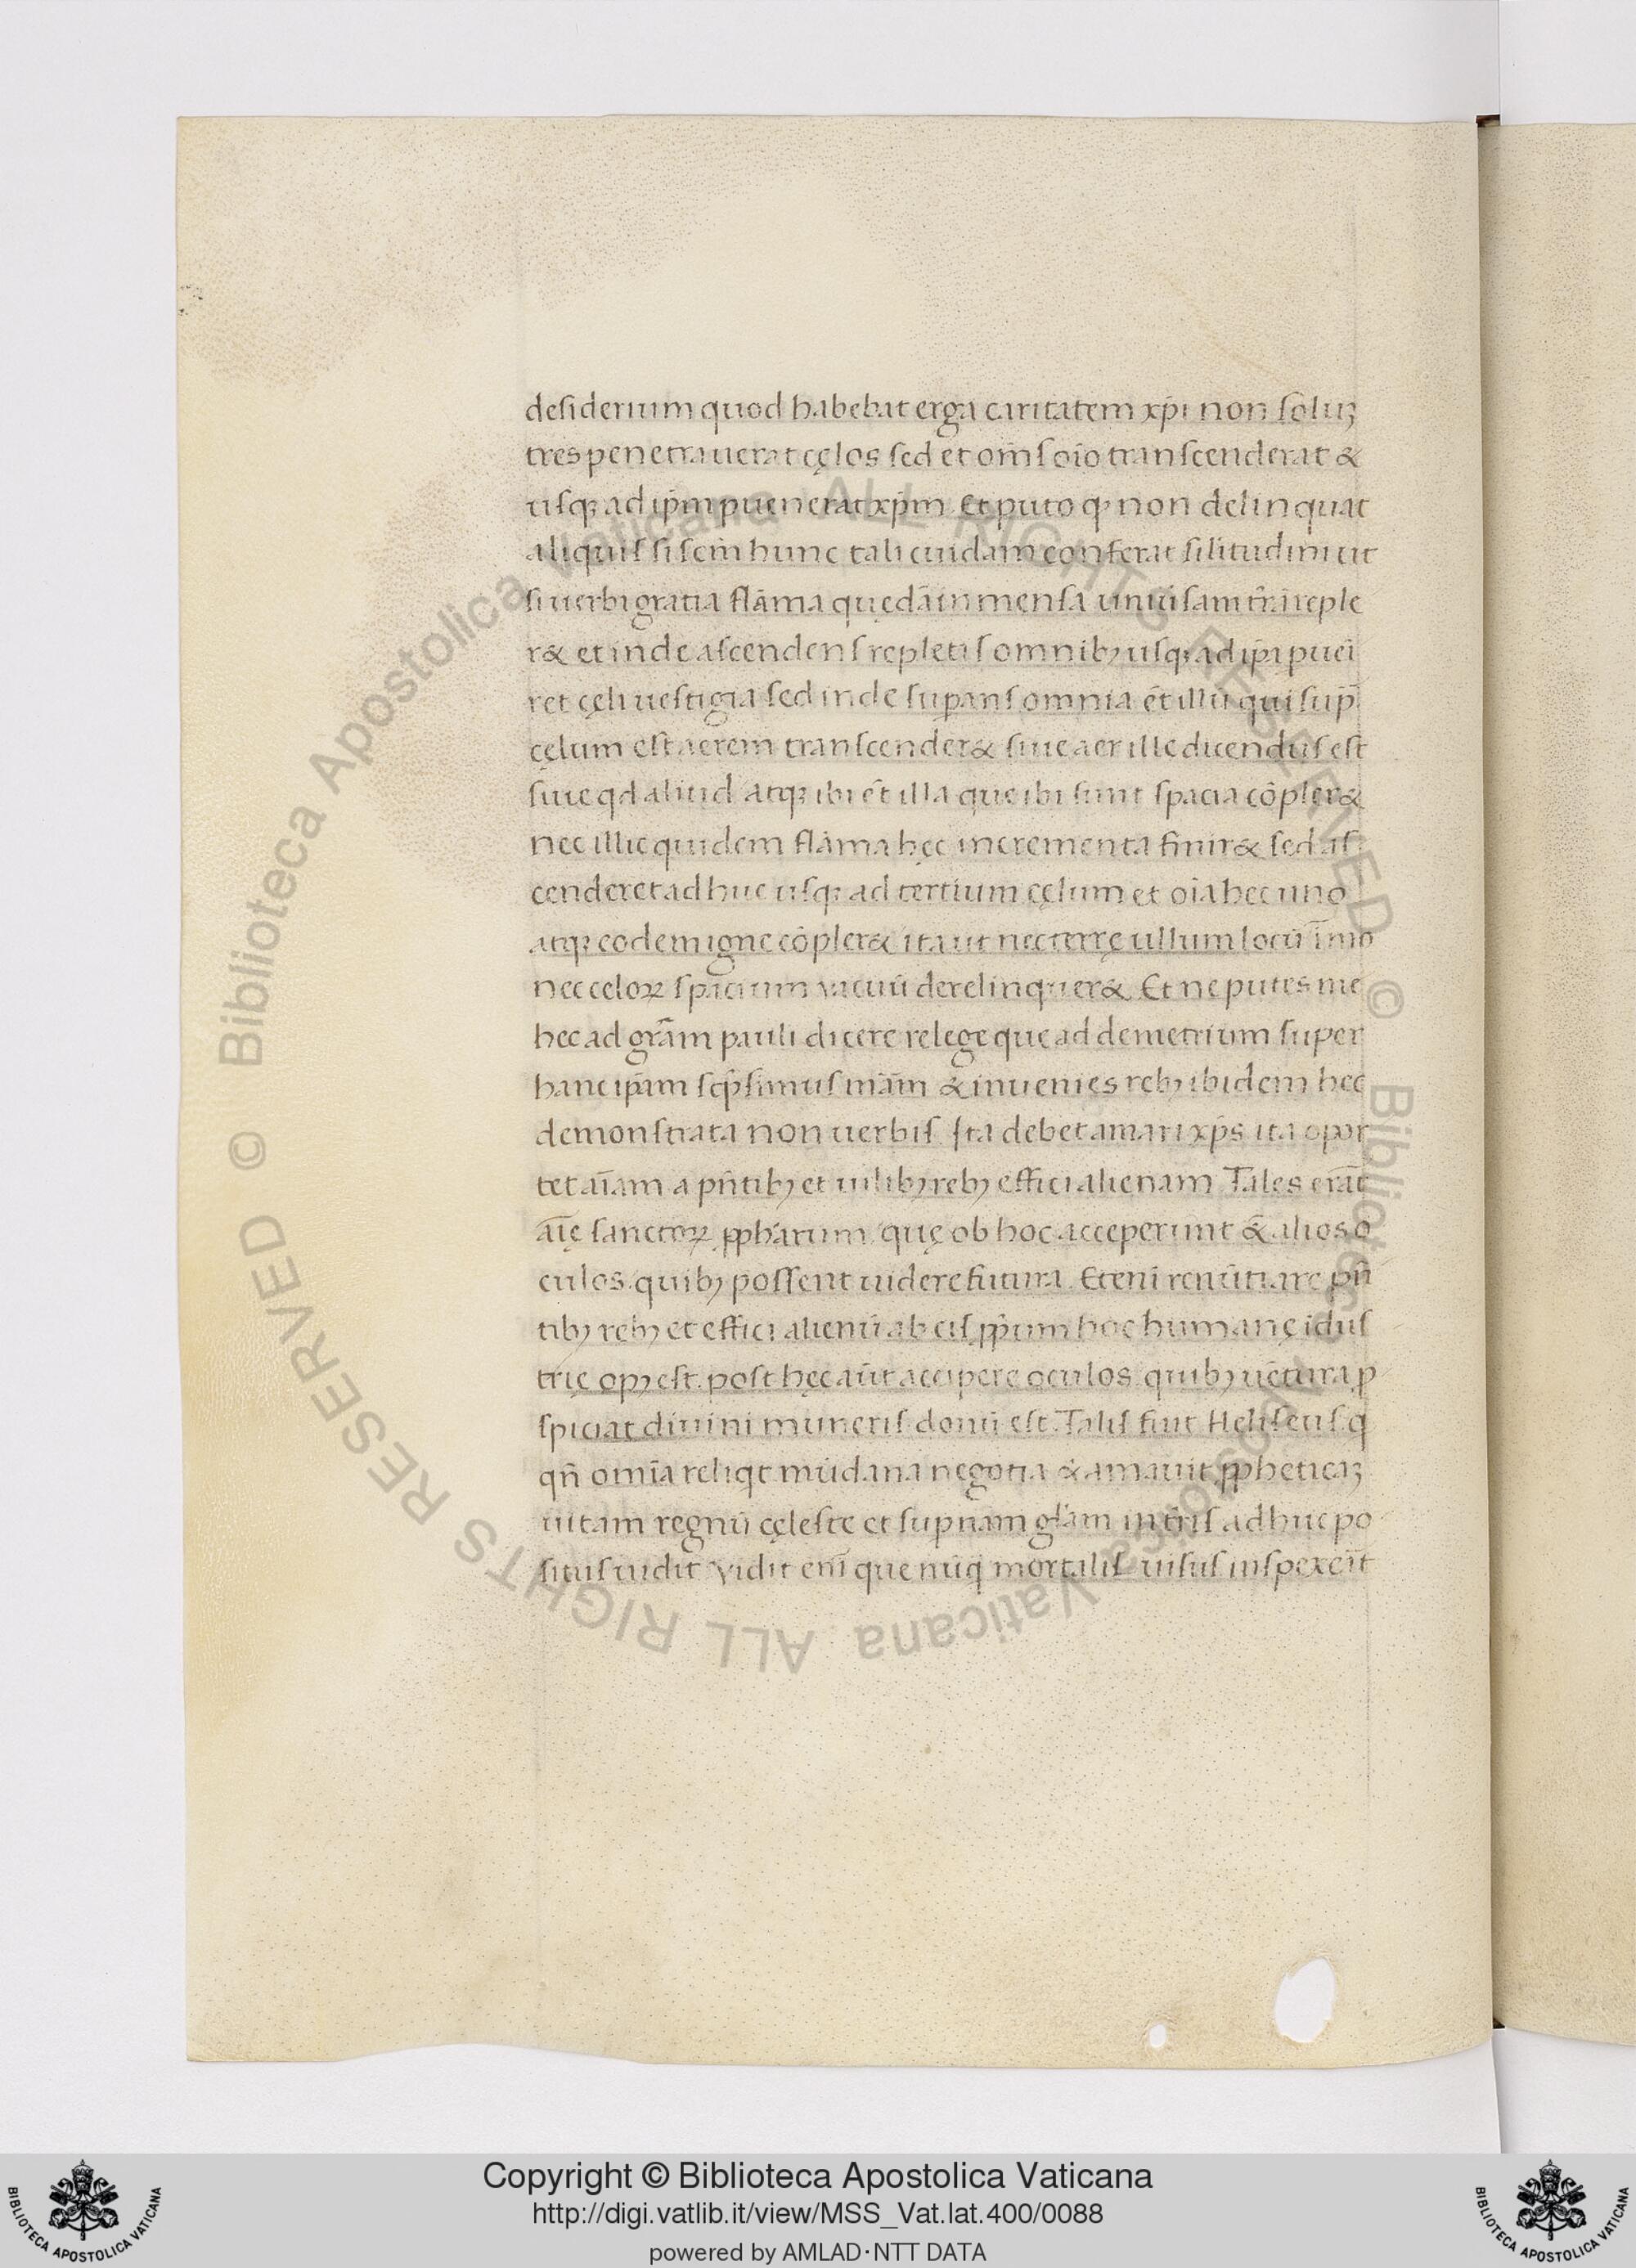 desiderium quod habebat erga caritatem xp̄i non soluꝫ
tres penetrauerat cęlos sed et om̄s oīo transcenderat &
usqꝫ ad ip̄m puenerat xp̄m. Et puto ꝙ non delinquat
aliquis si sem̄ hunc tali cuidam conferat silitudini ut
si uerbi gratia flāma quędā inmensa uniūsam tr̄ā reple
r& et inde ascendens repletis omnibꝫ usqꝫ ad ip̄i pueī
ret cęli uestigia sed inde supans omnia ēt illū qui sup̄
cęlum est aerem transcender& siue aer ille dicendus est
siue qd aliud atqꝫ ibi ēt illa que ibi sunt spacia cōpler&
nec illic quidem flāma hęc incrementa finir& sed as
cenderet adhuc usqꝫ ad tertium cęlum et oīa hec uno
atqꝫ eodem igne cōpler& ita ut nec terrę ullum locū īmo
nec celoꝝ spacium vacuū derelinquer&. Et ne putes me
hec ad grām pauli dicere relege que ad demetrium super
hanc ip̄am scp̄simus mām & inuenies rebꝫ ibidem hec
demonstrata non uerbis. Ita debet amari xp̄s ita opor
tet aīam a pn̄tibꝫ et uilibꝫ rebꝫ effici alienam. Tales erāt
aīę sanctoꝝ ꝓpharum quę ob hoc acceperunt & alios o
culos. quibꝫ possent uidere futura. Etenī renūtiare pn̄
tibꝫ rebꝫ et effici alienū ab eis ꝓp̄ium hoc humanę īdus
trię opꝫ est. post hęc aūt accipere oculos quibꝫ uētura ꝑ
spiciat diuini muneris donū est. Talis fuit Heliseus. q
qn̄ omīa reliqt mūdana negotia & amauit ꝓpheticaꝫ
uitam regnū cęleste et supnam gl̄am in tr̄is adhuc po
situs uidit. Vidit enī que nūq̄ mortalis uisus inspexeīt
Copyright © Biblioteca Apostolica Vaticana
http://digi.vatlib.it/view/MSS_Vat.lat.400/0088
powered by AMLAD·NTT DATA
BIBLIOTECA APOSTOLICA VATICANA
BIBLIOTECA APOSTOLICA VATICANA
© Biblioteca Apostolica Vaticana ALL RIGHTS RESERVED © Biblioteca Apostolica Vaticana ALL RIGHTS RESERVED